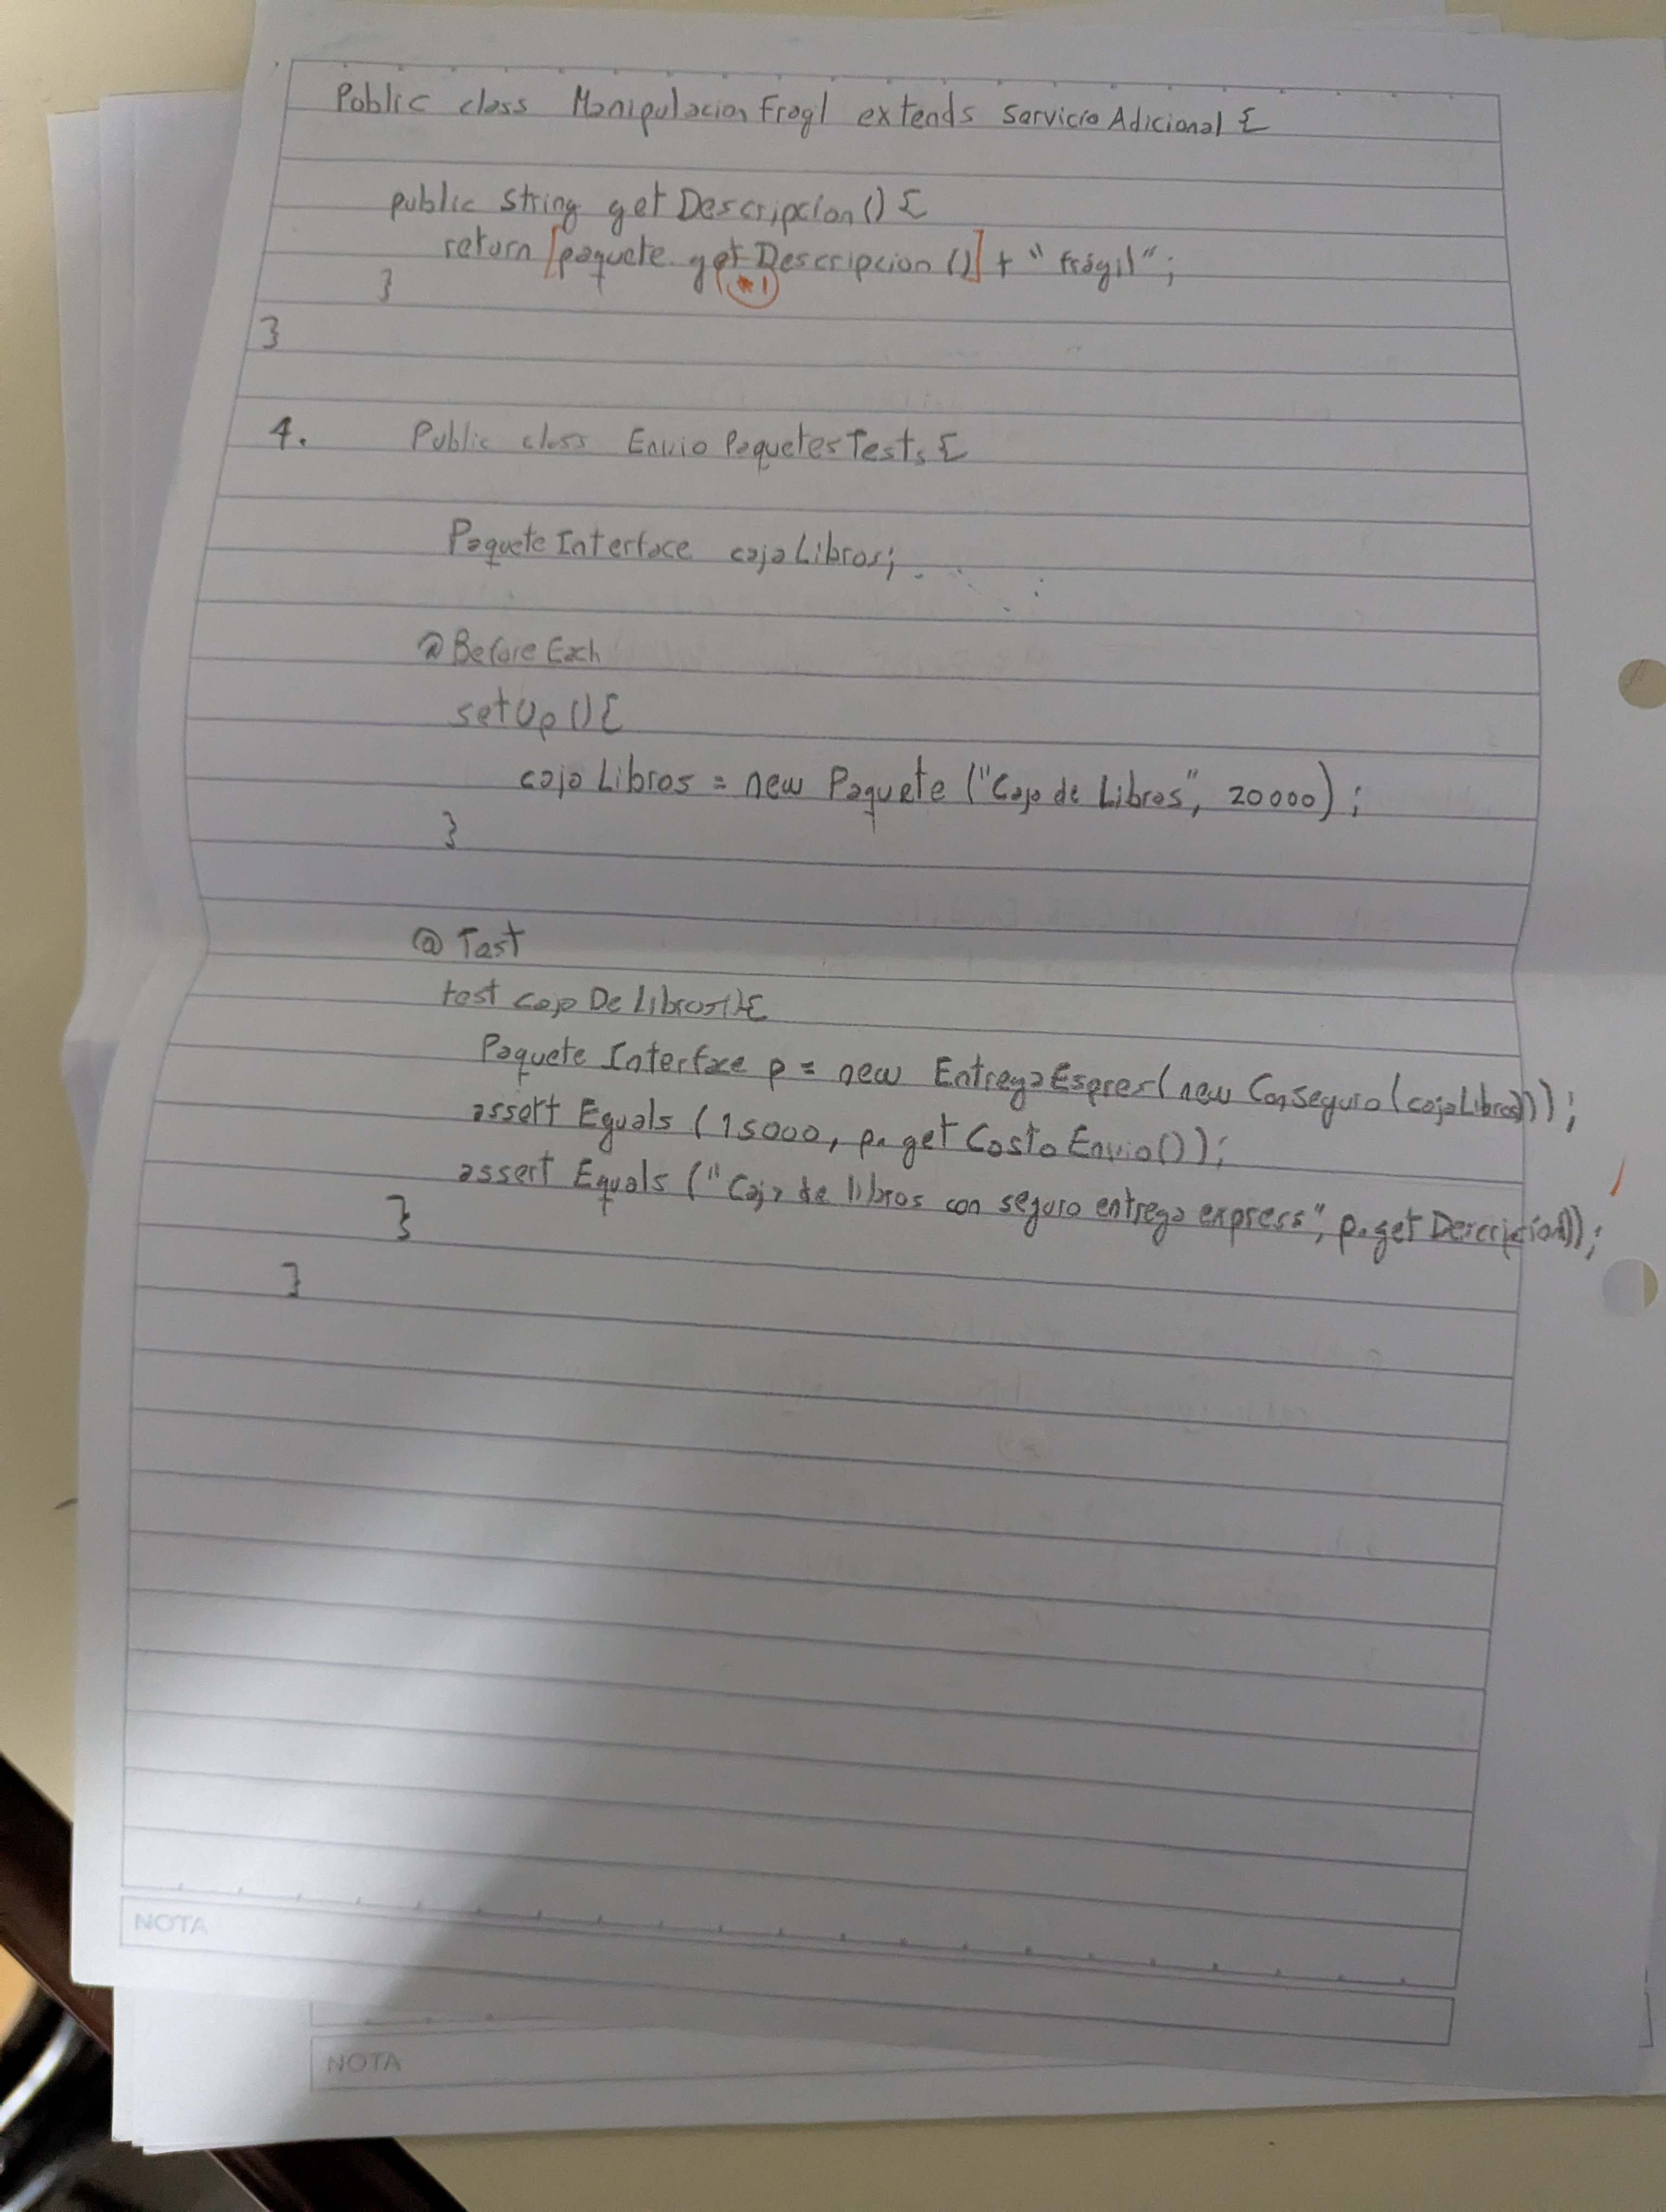 Public class ManipulacionFragl extends ServicioAdicional {
public String getDescripcion() {
return [paquete.getDescripcion()] + "fragil";
*1
}
}
4. Public class EnvioPaquetesTests {
PaqueteInterface cajaLibros;
@BeforeEach
setUp() {
cajaLibros = new Paquete("Caja de Libros", 20000);
}
@Test
test cajaDeLibros() {
PaqueteInterface p = new EntregaEspres(new ConSeguro(cajaLibros)));
assertEquals(15000, p.getCostoEnvio());
assertEquals("Caja de libros con seguro entrega express", p.getDescripcion());
}
}
NOTA
NOTA